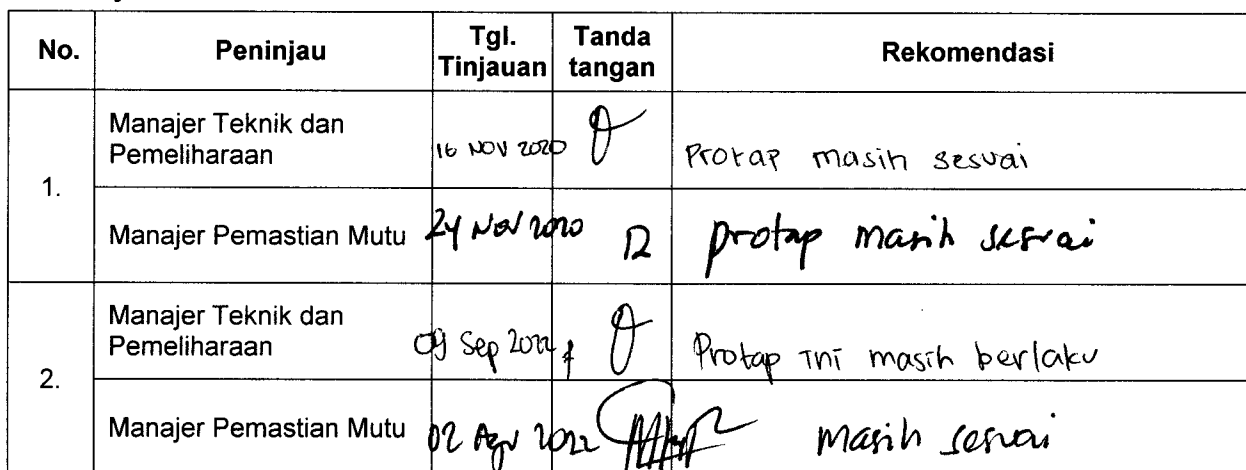 No. Peninjau Tgl. Tinjauan Tanda tangan Rekomendasi
1.
Manajer Teknik dan Pemeliharaan 16 NOV 2020 Protap masih sesuai
Manajer Pemastian Mutu 24 Nov 2020 protap masih sesuai
2.
Manajer Teknik dan Pemeliharaan 09 Sep 2022 Protap ini masih berlaku
Manajer Pemastian Mutu 02 2022 masih sesuai